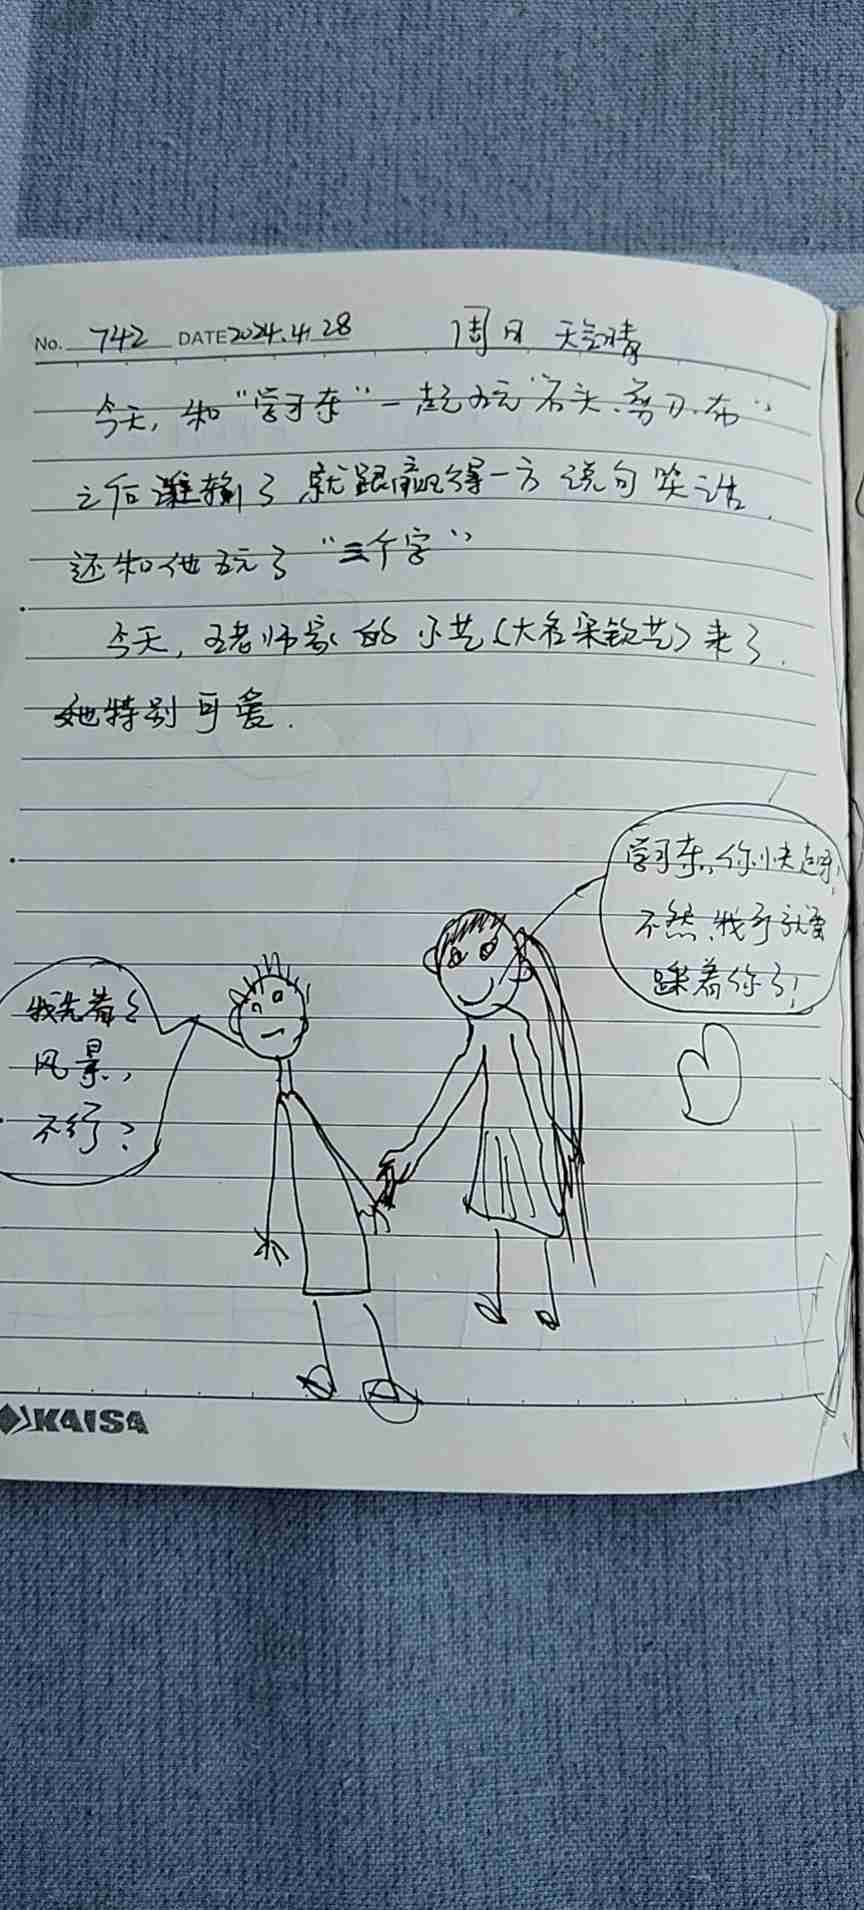 No. 742 DATE 2024.4.28 周日 天气晴
今天,和“学习车”一起玩“石头、剪刀、布”
之后谁输了就跟赢得一方说句笑话.
还和他玩了“三个字”
今天,王老师家的小艺(大名宋钦艺)来了.
她特别可爱.
学习车,你快起来!
不然,我可就要
踩着你了!
我先看看
风景,
不行?
KAISA